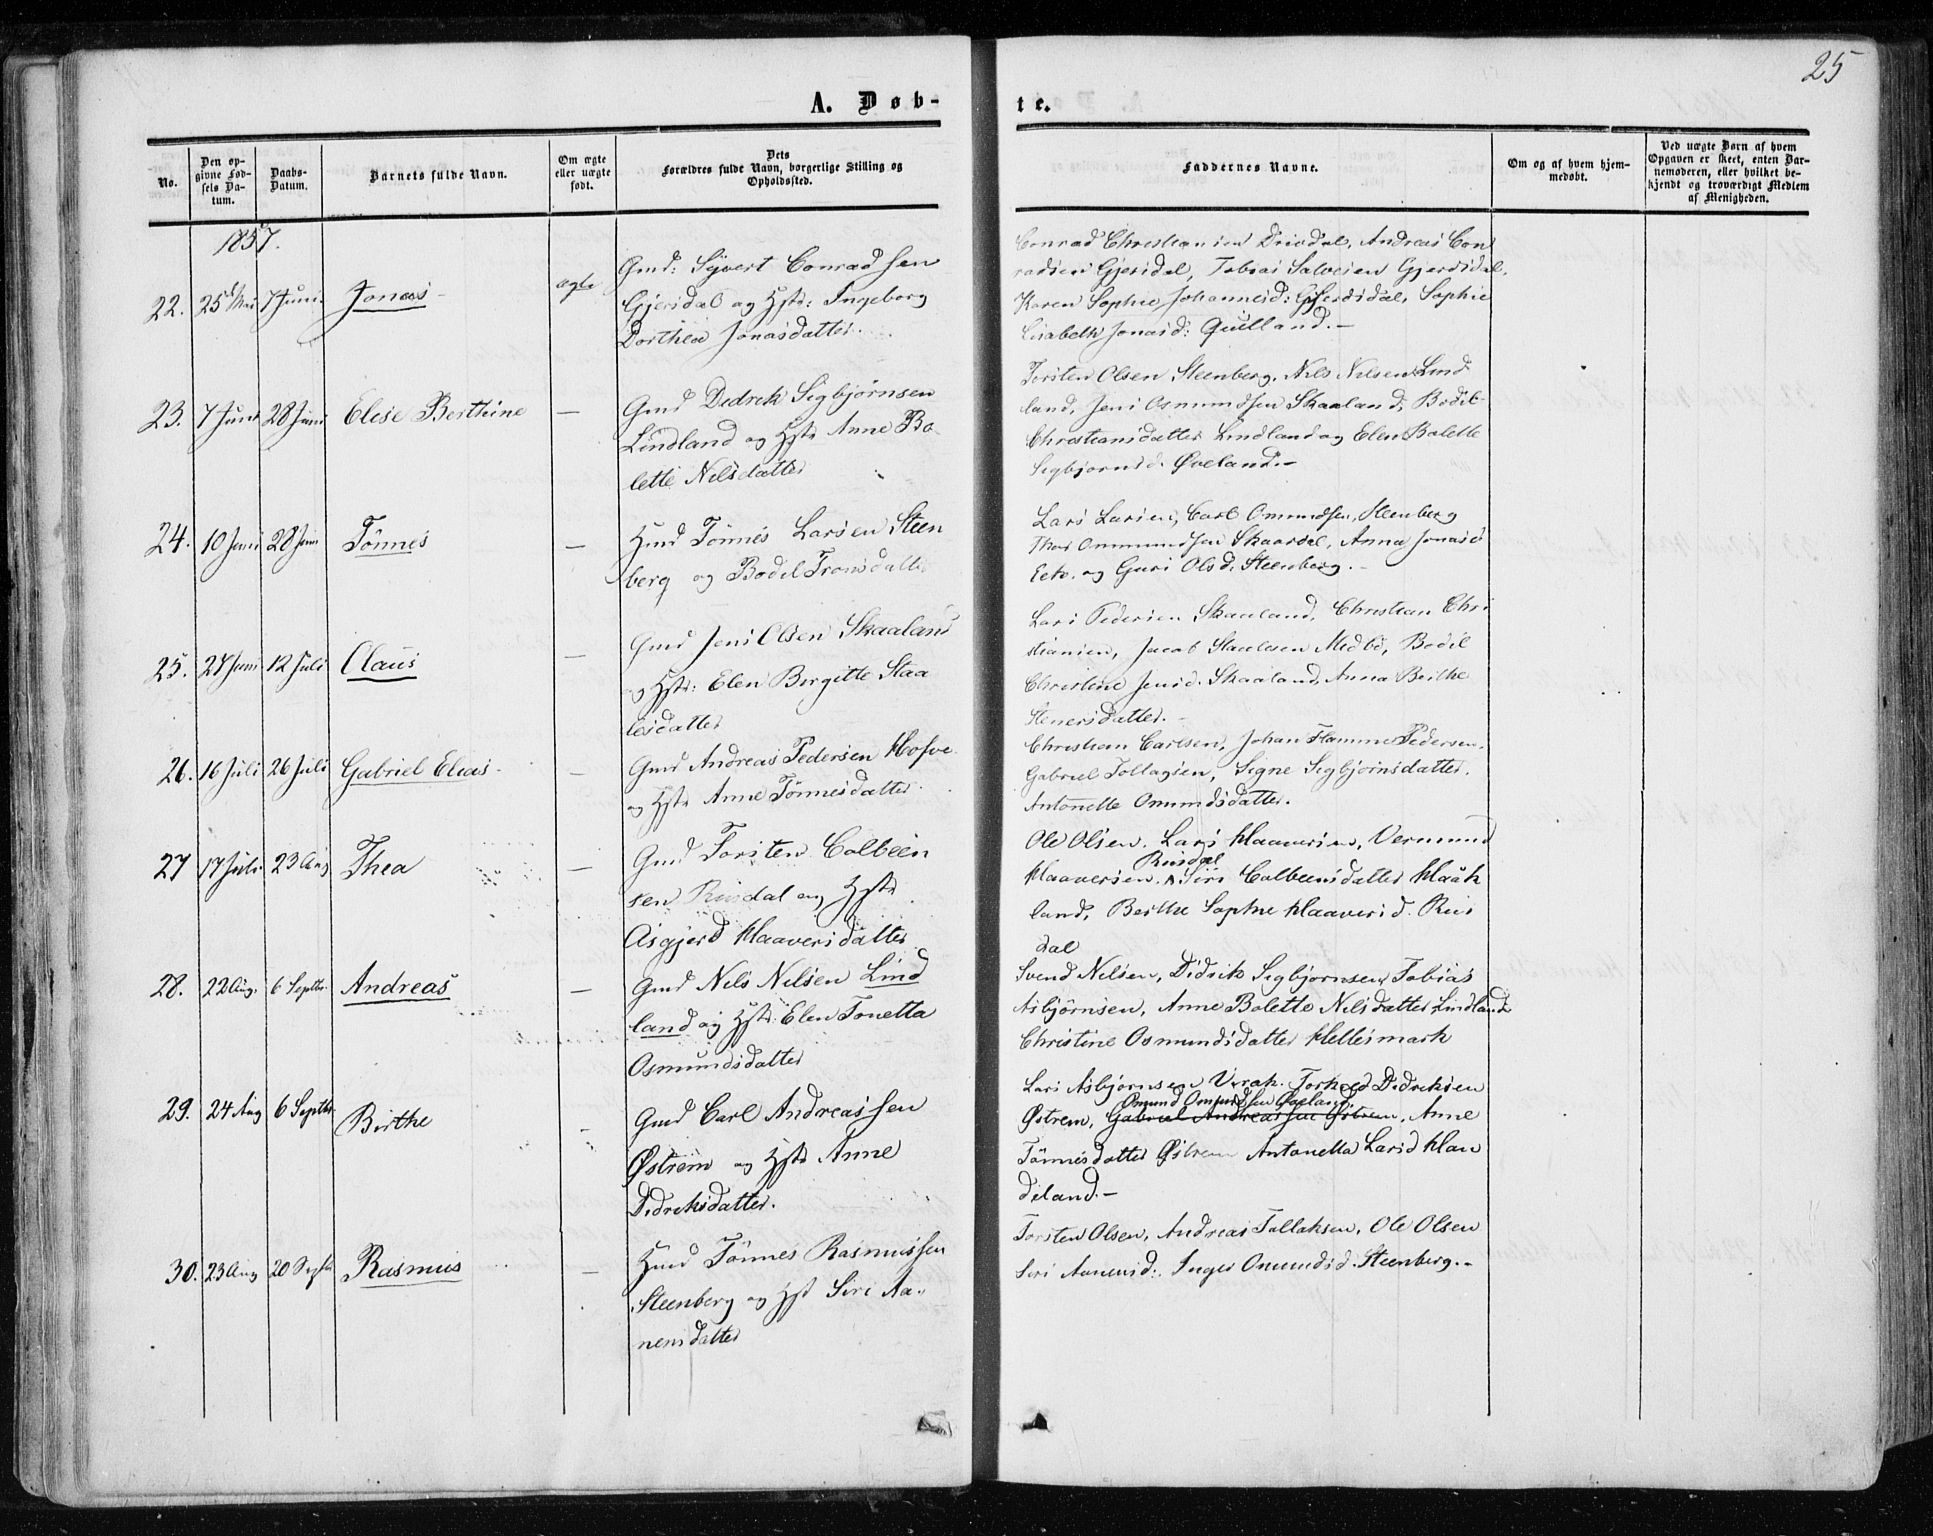 25
A. Døb-
te.
No.
Den op-
givne Fød-
sels Da-
tum.
Daabs-
Datum.
Barnets fulde Navn.
Om ægte
eller uægte
født.
Dets
Forældres fulde Navn, borgerlige Stilling og
Opholdssted.
Faddernes Navne.
Om og af hvem hjem-
medøbt.
Ved uægte Børn af hvem
Opgaven er skeet, enten Bar-
nemoderen, eller hvilket be-
kjendt og troværdigt Medlem
af Menigheden.
1857.
22. 25 Mai 7 Juni Jonas ægte
Gmd: Syvert Conradsen
Gjersdal og Hstr: Ingeborg
Dorthea Jonasdatter.
Conrad Christiansen Drivdal, Andreas Con
radsen Gjersdal, Tobias Salvesen Gjersdal,
Karen Sophie Johannesd: Gjersdal, Sophie
Lisabeth Jonasd: Qvilland.-
23. 7 Juni 28 Juni Elise Berthine —
Gmd Didrik Sigbjørnsen
Lindland og Hstr Anne Bo
lette Nilsdatter
Torsten Olsen Steenberg, Nils Nilsen Lind
land, Jens Osmundsen Skaaland, Bodil
Christiansdatter Lindland og Elen Bolette
Sigbjørnsd. Øveland.-
24. 10 Juni 28 Juni Tönnes —
Hmd Tönnes Larsen Steen
berg og Bodil Tronsdatter
Lars Larsen, Carl Omundsen, Steenberg
Thor Ommundsen Skaardal, Anna Jonasd
Eeto. og Guri Olsd. Steenberg.-
25. 27 Juni 12 Juli Claus —
Gmd Jens Olsen Skaaland
og Hstr: Elen Birgitte Staa
lesdatter
Lars Pedersen Skaaland, Christian Chri
stiansen, Jacob Staalesen Medbö, Bodil
Christine Jensd. Skaaland, Anna Berthe
Stenersdatter.-
26. 16 Juli 26 Juli Gabriel Elias —
Gmd Andreas Pedersen
og Hstr Anne Tönnesdatter.
Christian Carlsen, Johan Pedersen,
Gabriel Tollagsen, Signe Sigbjørnsdatter,
Antonette Omundsdatter.
27 17 Juli 23 Aug Thea —
Gmd Torsten Colbeen
sen Ruisdal og Hstr
Asgjerd Haaversdatter
Ole Olsen. Lars Haaversen, Vermund
Ruisdal
Haaversen. Siri Colbeensdatter
land, Berthe Sophie Haaversd. Ruis
dal
28. 22 Aug. 6 Septbr. Andreas —
Gmd Nils Nilsen Lind
land og Hstr: Elen Tonetta
Osmundsdatter
Svend Nilsen, Didrik Sigbjørnsen, Tobias
Asbjørnsen, Anne Bolette Nilsdatter Lindland
Christine Osmundsdatter Hellesmark
29. 24 Aug 6 Septbr. Birthe -
Gmd Carl Andreassen
Østrem og Hstr Anne
Didriksdatter.
Lars Asbjørnsen Virak. Torkild Didriksen
Omund Omundsen Øveland
Østrem, Gabriel Andreassen Østrem, Anne
Tönnesdatter Østrem Antonetta Larsd Han
deland.-
30. 23 Aug 20 Septbr Rasmus —
Hmd Tönnes Rasmussen
Steenberg og Hst Siri Aa-
nensdatter
Torsten Olsen, Andreas Tallaksen, Ole Olsen
Siri Aanensd:. Inger Omundsd. Steenberg.-